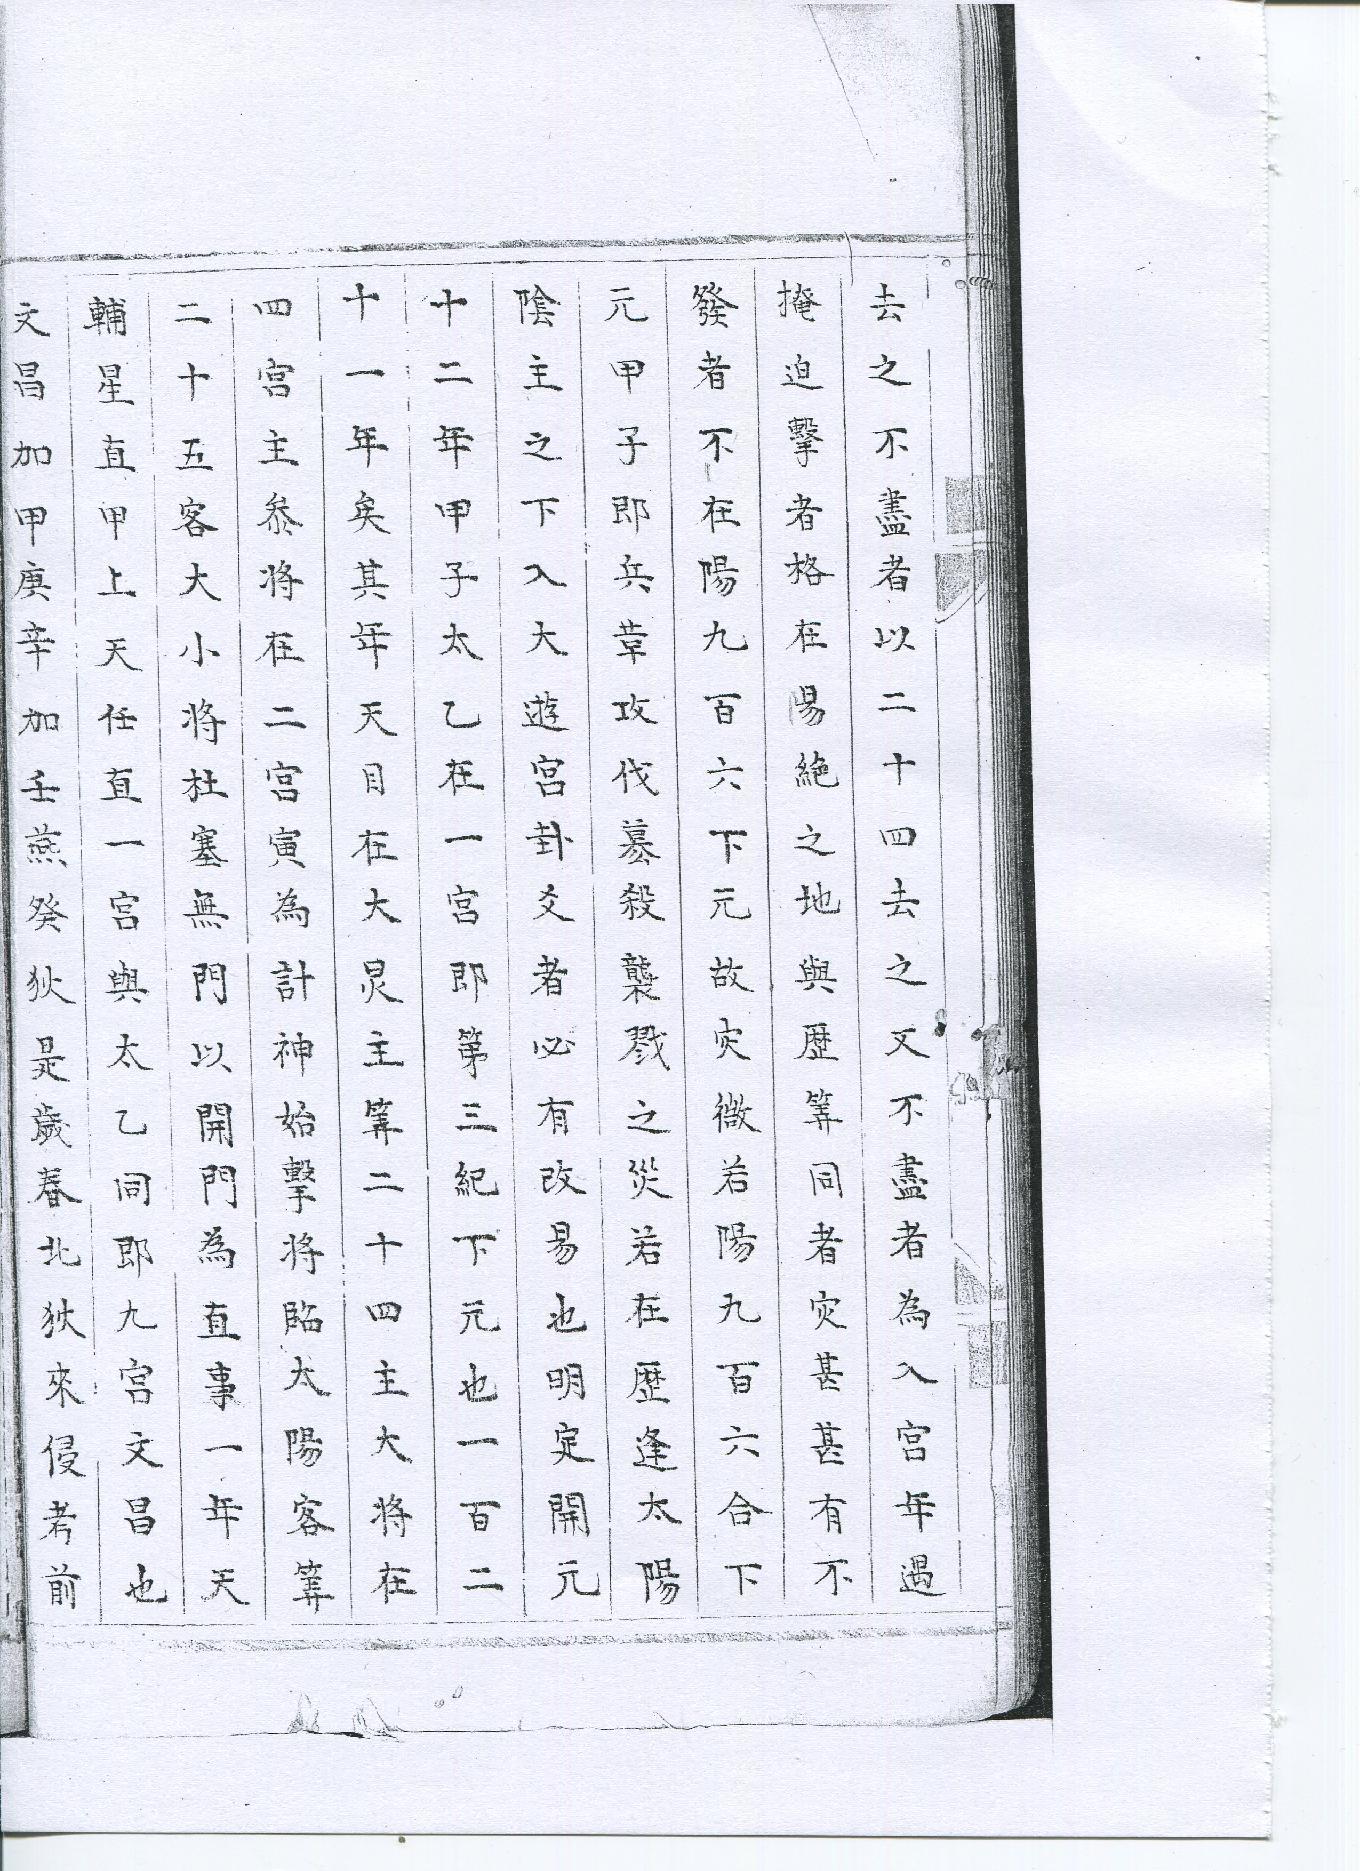 去之不盡者以二十四去之又不盡者為入宮年遇
掩迫擊者格在陽絶之地與歷筭同者灾甚甚有不
發者不在陽九百六下元故灾微若陽九百六合下
元甲子即兵革攻伐簒殺襲戮之災若在歷逢太陽
陰主之下入大遊宮卦爻者必有改易也明定開元
十二年甲子太乙在一宮即第三紀下元也一百二
十一年矣其年天目在大炅主筭二十四主大將在
四宮主叅將在二宮寅為計神始擊將臨太陽客筭
二十五客大小將杜塞無門以開門為直事一年天
輔星直甲上天任直一宮與太乙同即九宮文昌也
文昌加甲庚辛加壬燕癸狄是歲春北狄來侵考前